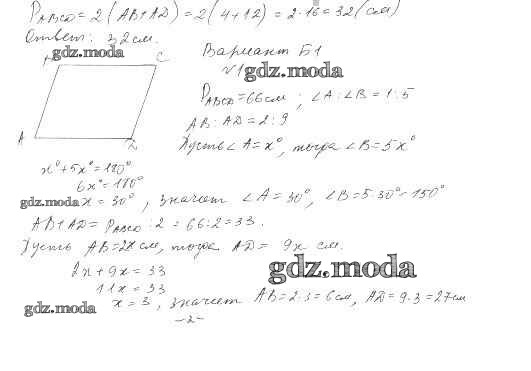 P_ABCD = 2(AB+AD) = 2(4+12) = 2·16 = 32 (см)
Ответ: 32 см.
gdz.moda
C
Вариант Б1
№1 gdz.moda
P_ABCD = 66 см ; ∠A : ∠B = 1:5
AB : AD = 2:9
A
D
Пусть ∠A = x°, тогда ∠B = 5x°
x° + 5x° = 180°
6x° = 180°
gdz.moda x = 30°, значит ∠A = 30°, ∠B = 5·30° = 150°
AB + AD = P_ABCD : 2 = 66:2 = 33.
Пусть AB = 2x см, тогда AD = 9x см.
2x + 9x = 33
gdz.moda
11x = 33
gdz.moda
x = 3, значит AB = 2·3 = 6 см, AD = 9·3 = 27 см
-2-